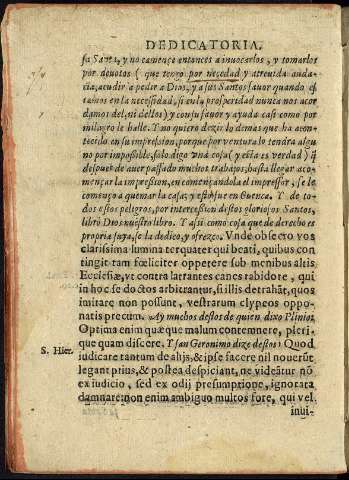 DEDICATORIA.
sa Santa, y no comence entonces a inuocarlos, y tomarlos
por deuotos (que tengo por necedad y atreuida auda-
cia, acudir a pedir a Dios, y a sus Santos fauor quando es
tamos en la necessidad, si en la prosperidad nunca nos acor
damos del, ni dellos) y con su fauor y ayuda casi como por
milagro le halle. Y no quiero dezir lo demas que ha acon-
tecido en su impression, porque por ventura lo tendra algu
no por impossible, solo digo vna cosa (y esta es verdad) q̃
despues de auer passado muchos trabajos, hasta llegar aco-
mençar la impression, en començandola el impressor, se le
començo a quemar la casa; y esto fue en Cuenca. Y de to-
dos estos peligros, por intercession destos gloriosos Santos,
libró Dios nuestro libro. Y assi como cosa que de derecho es
propria suya, se la dedico, y ofrezco. Vnde obsecro vos
clarissima lumina terquaterqui beati, quibus con
tingit tam fœliciter oppetere sub menibus altis
Ecclesiæ, vt contra latrantes canes rabidore, qui
in hoc se doctos arbitrantur, si illis detrahãt, quos
imitare non possunt, vestrarum clypeos oppo-
natis precum. Ay muchos destos de quien dixo Plinio,
Optima enim quæque malum contemnere, pleri-
que quam discere. Y san Geronimo dize destos: Quod
S. Hier.
iudicare tantum de alijs, & ipse sacere nil nouerũt
legant prius, & postea despiciant, ne videãtur nõ
ex iudicio, sed ex odij presumptione, ignorata
damnare: non enim ambiguo multos fore, qui vel
inui-